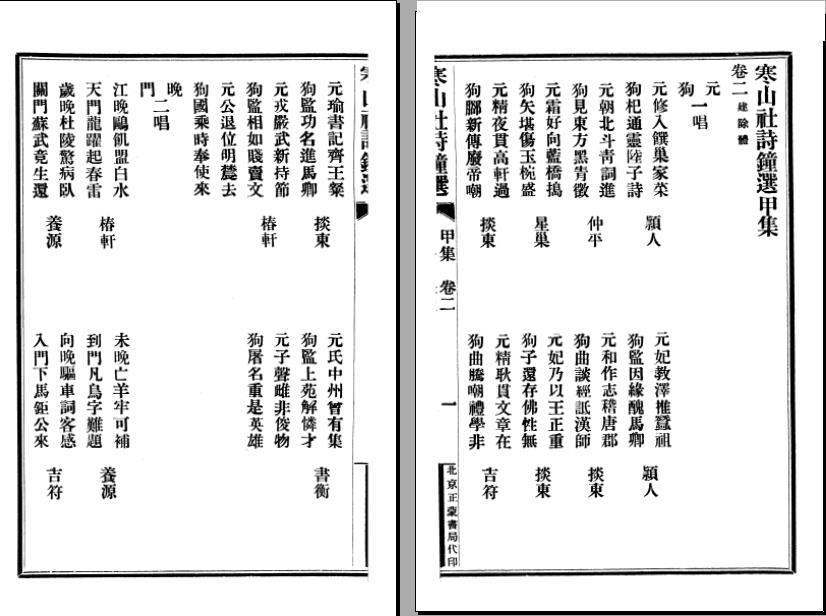 寒山社詩鐘選甲集
卷二 建除體
元
狗一唱
元修入饌巢家菜
狗杞通靈陸子詩
頴人
元妃教澤推蠶祖
狗監因緣醜馬卿
頴人
元朝北斗青詞進
狗見東方黑眚徵
仲平
元和作志稽唐郡
狗曲談經詆漢師
掞東
元霜好向藍橋搗
狗矢堪傷玉椀盛
星巢
元妃乃以王正重
狗子還存佛性無
掞東
元精夜貫高軒過
狗腳新傳廢帝嘲
掞東
元精耿貫文章在
狗曲騰嘲禮學非
吉符
寒山社詩鐘選 甲集 卷二 一 北京正蒙書局代印
元瑜書記齊王粲
狗監功名進馬卿
掞東
元氏中州曾有集
狗監上苑解憐才
書衡
元戎嚴武新持節
狗監相如賤賣文
椿軒
元子聲雌非俊物
狗屠名重是英雄
元公退位明農去
狗國乘時奉使來
晚
門二唱
江晚鷗飢盟白水
天門龍躍起春雷
椿軒
未晚亡羊牢可補
到門凡鳥字難題
養源
歲晚杜陵驚病臥
關門蘇武竟生還
養源
向晚驅車詞客感
入門下馬鉅公來
吉符